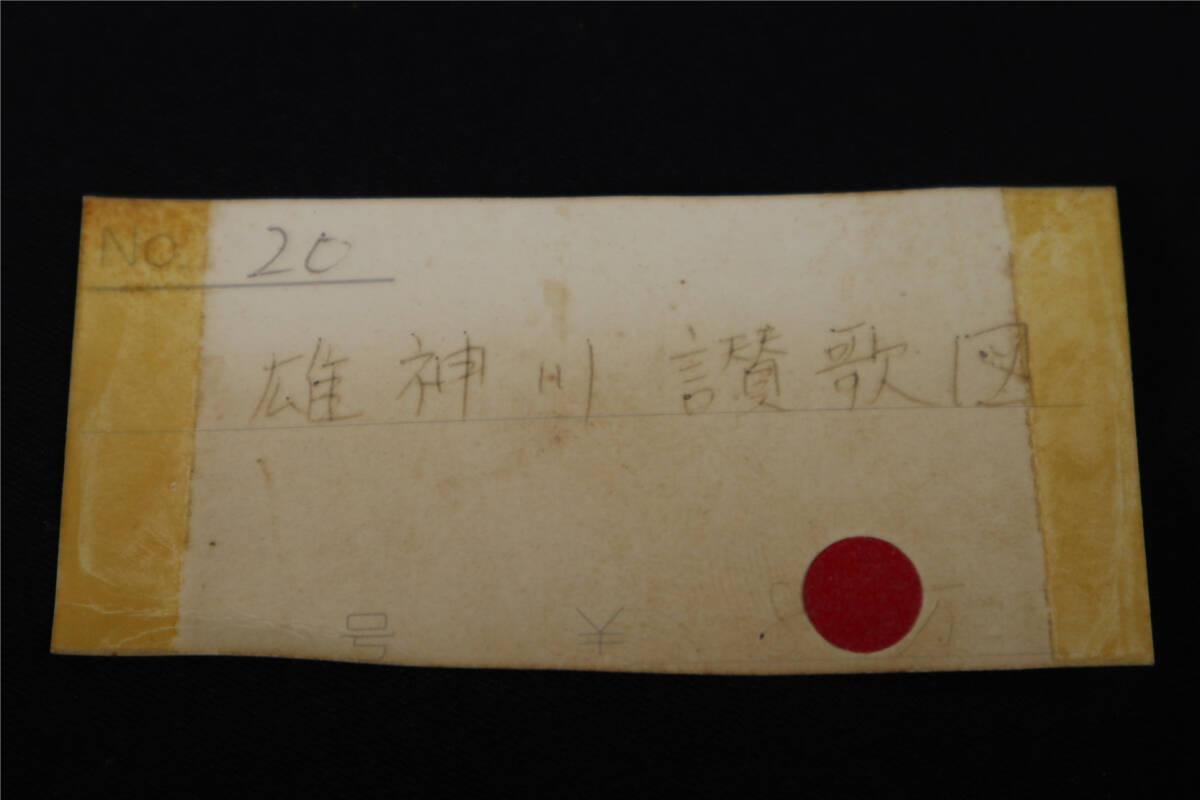 No. 20
雄神川讃歌図
号 ¥